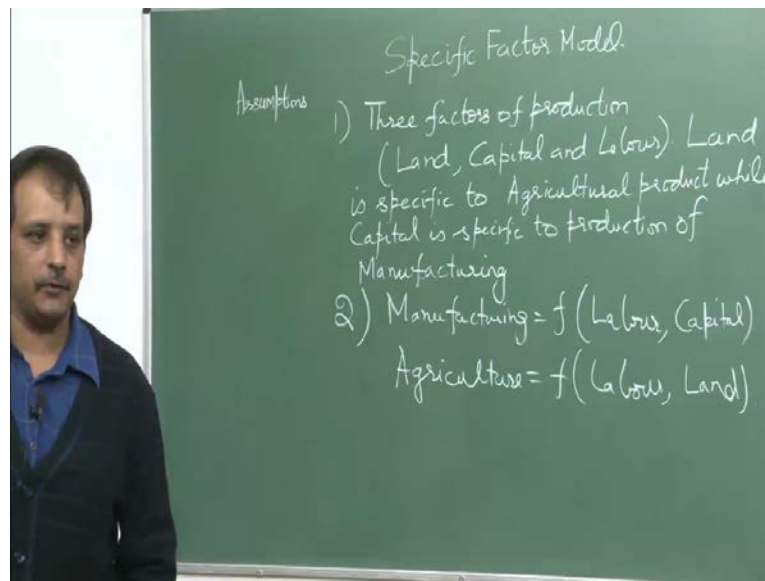 Specific Factor Model
Assumptions
1) Three factors of production
(Land, Capital and Labour). Land
is specific to Agricultural product while
Capital is specifc to production of
Manufacturing
2) Manufacturing = f (Labour, Capital)
Agriculture = f (Labour, Land).